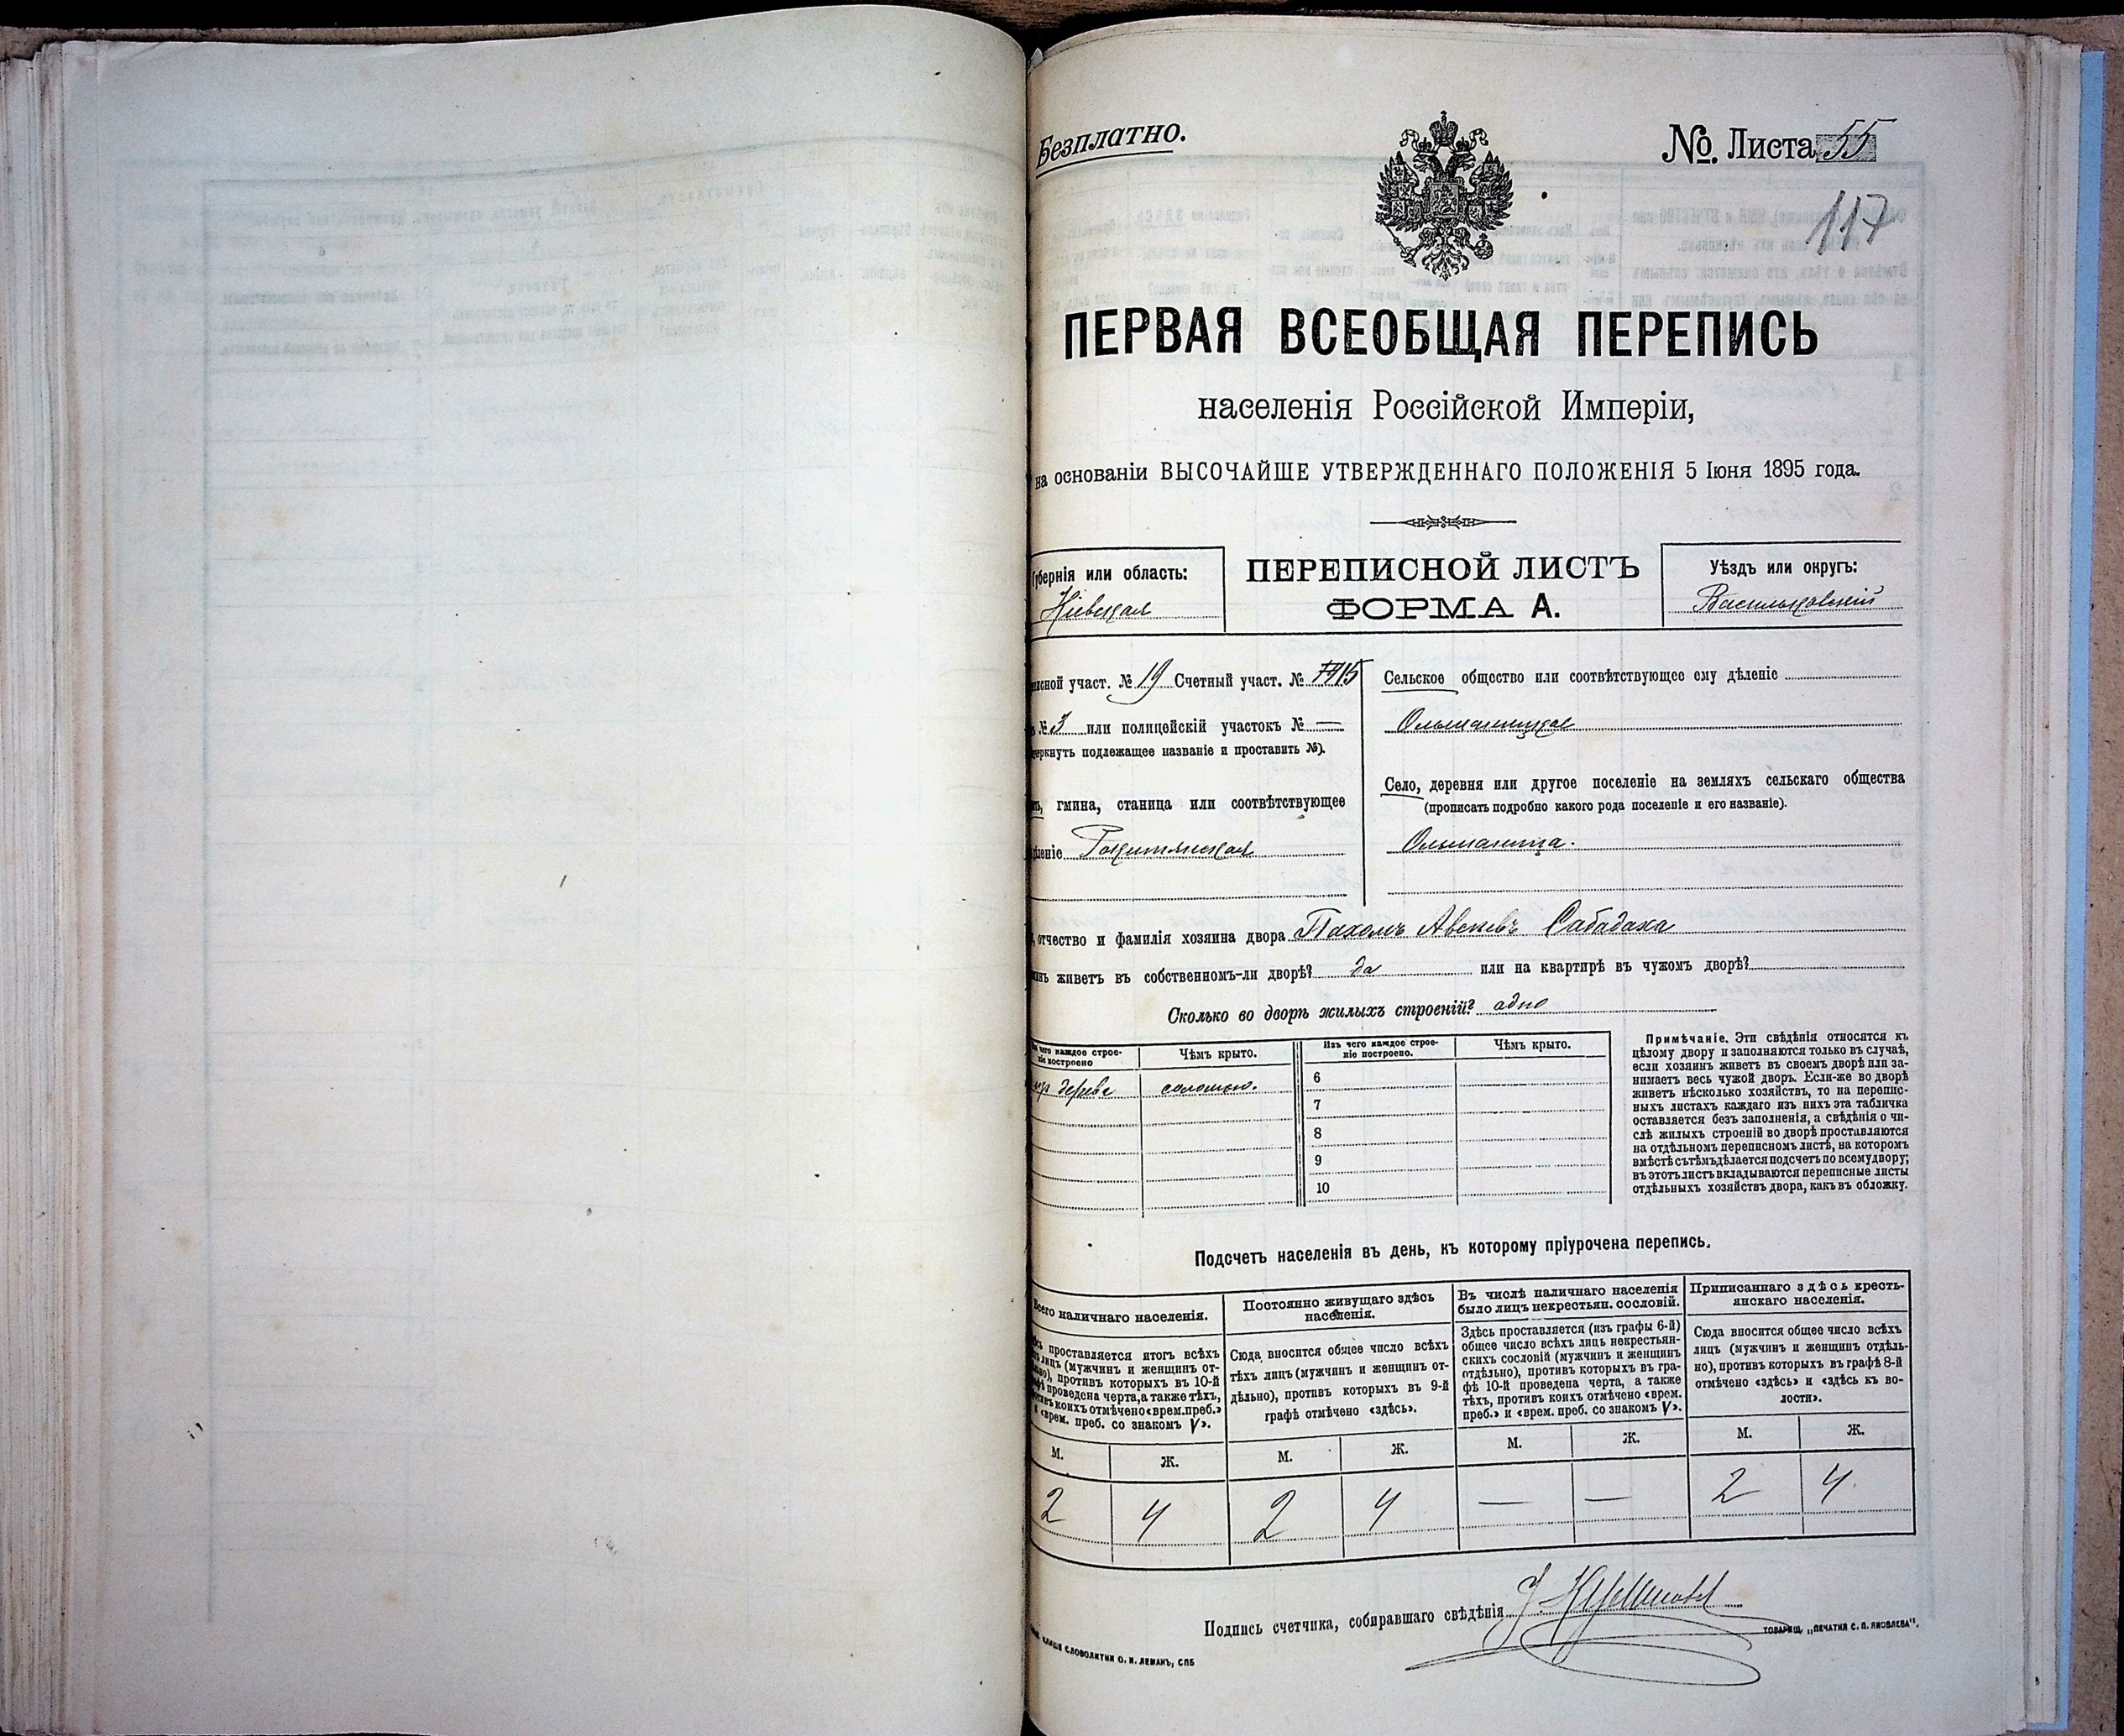 Безплатно.
№. Листа 55
117
ПЕРВАЯ ВСЕОБЩАЯ ПЕРЕПИСЬ
населенія Россійской Имперіи,
на основаніи ВЫСОЧАЙШЕ УТВЕРЖДЕННАГО ПОЛОЖЕНІЯ 5 Іюня 1895 года.
Губернія или область:
Кіевская
ПЕРЕПИСНОЙ ЛИСТЪ
ФОРМА А.
Уѣздъ или округъ:
Васильковскій
писной участ. № 19 Счетный участ. № 15
№ 3 или полицейскій участокъ № —
черкнуть подлежащее названіе и проставить №).
ть, гмина, станица или соотвѣтствующее
дѣленіе Рокитянская
Сельское общество или соотвѣтствующее ему дѣленіе
Ольшаницкое
Село, деревня или другое поселеніе на земляхъ сельскаго общества
(прописать подробно какого рода поселеніе и его названіе).
Ольшаница.
, отчество и фамилія хозяина двора Пахомъ Сабадаха
инъ живетъ въ собственномъ-ли дворѣ? да или на квартирѣ въ чужомъ дворѣ?
Сколько во дворѣ жилыхъ строеній? адно
Изъ чего каждое строе-
ніе построено
Чѣмъ крыто.
Изъ чего каждое строе-
ніе построено.
Чѣмъ крыто.
изъ дерева соломою.
6
7
8
9
10
Примѣчаніе. Эти свѣдѣнія относятся къ
цѣлому двору и заполняются только въ случаѣ,
если хозяинъ живетъ въ своемъ дворѣ или за-
нимаетъ весь чужой дворъ. Если-же во дворѣ
живетъ нѣсколько хозяйствъ, то на перепис-
ныхъ листахъ каждаго изъ нихъ эта табличка
оставляется безъ заполненія, а свѣдѣнія о чи-
слѣ жилыхъ строеній во дворѣ проставляются
на отдѣльномъ переписномъ листѣ, на которомъ
вмѣстѣ съ тѣмъ дѣлается подсчетъ по всему двору;
въ этотъ листъ вкладываются переписные листы
отдѣльныхъ хозяйствъ двора, какъ въ обложку.
Подсчетъ населенія въ день, къ которому пріурочена перепись.
Всего наличнаго населенія.
Здѣсь проставляется итогъ всѣхъ
лицъ (мужчинъ и женщинъ от-
дѣльно), противъ которыхъ въ 10-й
графѣ проведена черта, а также тѣхъ,
противъ коихъ отмѣчено «врем. преб.»
и «врем. преб. со знакомъ V».
Постоянно живущаго здѣсь
населенія.
Сюда вносится общее число всѣхъ
тѣхъ лицъ (мужчинъ и женщинъ от-
дѣльно), противъ которыхъ въ 9-й
графѣ отмѣчено «здѣсь».
Въ числѣ наличнаго населенія
было лицъ некрестьян. сословій.
Здѣсь проставляется (изъ графы 6-й)
общее число всѣхъ лицъ некрестьян-
скихъ сословій (мужчинъ и женщинъ
отдѣльно), противъ которыхъ въ гра-
фѣ 10-й проведена черта, а также
тѣхъ, противъ коихъ отмѣчено «врем.
преб.» и «врем. преб. со знакомъ V».
Приписаннаго здѣсь кресть-
янскаго населенія.
Сюда вносится общее число всѣхъ
лицъ (мужчинъ и женщинъ отдѣль-
но), противъ которыхъ въ графѣ 8-й
отмѣчено «здѣсь» и «здѣсь къ во-
лости».
М. Ж. М. Ж. М. Ж. М. Ж.
2 4 2 4 — — 2 4
Подпись счетчика, собиравшаго свѣдѣнія
СЛОВОЛИТНИ О. И. ЛЕМАНЪ, СПБ
ТОВАРИЩ. „ПЕЧАТНЯ С. П. ЯКОВЛЕВА".